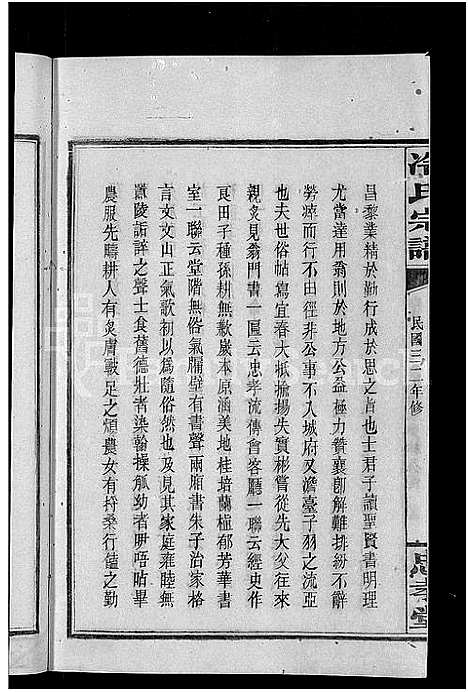 冷氏宗譜
民國三十二年修
忠孝堂
昌黎業精於勤行成於思之旨也士君子讀聖賢書明理
尤當達用翁則於地方公益極力贊襄卽解難排紛不辭
勞瘁而行不由徑非公事不入城府又澹臺子羽之流亞
也夫世俗帖寫宜春大抵揄揚失實彬嘗從先大父往來
親炙見翁門書一匾云忠孝流傳會客廳一聯云經史作
良田子種孫耕無歉歲本原涵美地桂培蘭植郁芳華書
室一聯云堂階無俗氣牖壁有書聲兩廂書朱子治家格
言文文山正氣歌初以爲隨俗然也及見其家庭雍睦無
蕙陵詬誶之聲士食舊德壯者染翰操觚幼者咿唔呫畢
農服先疇耕人有炙膚皸足之煩農女有捋桑行饁之勤